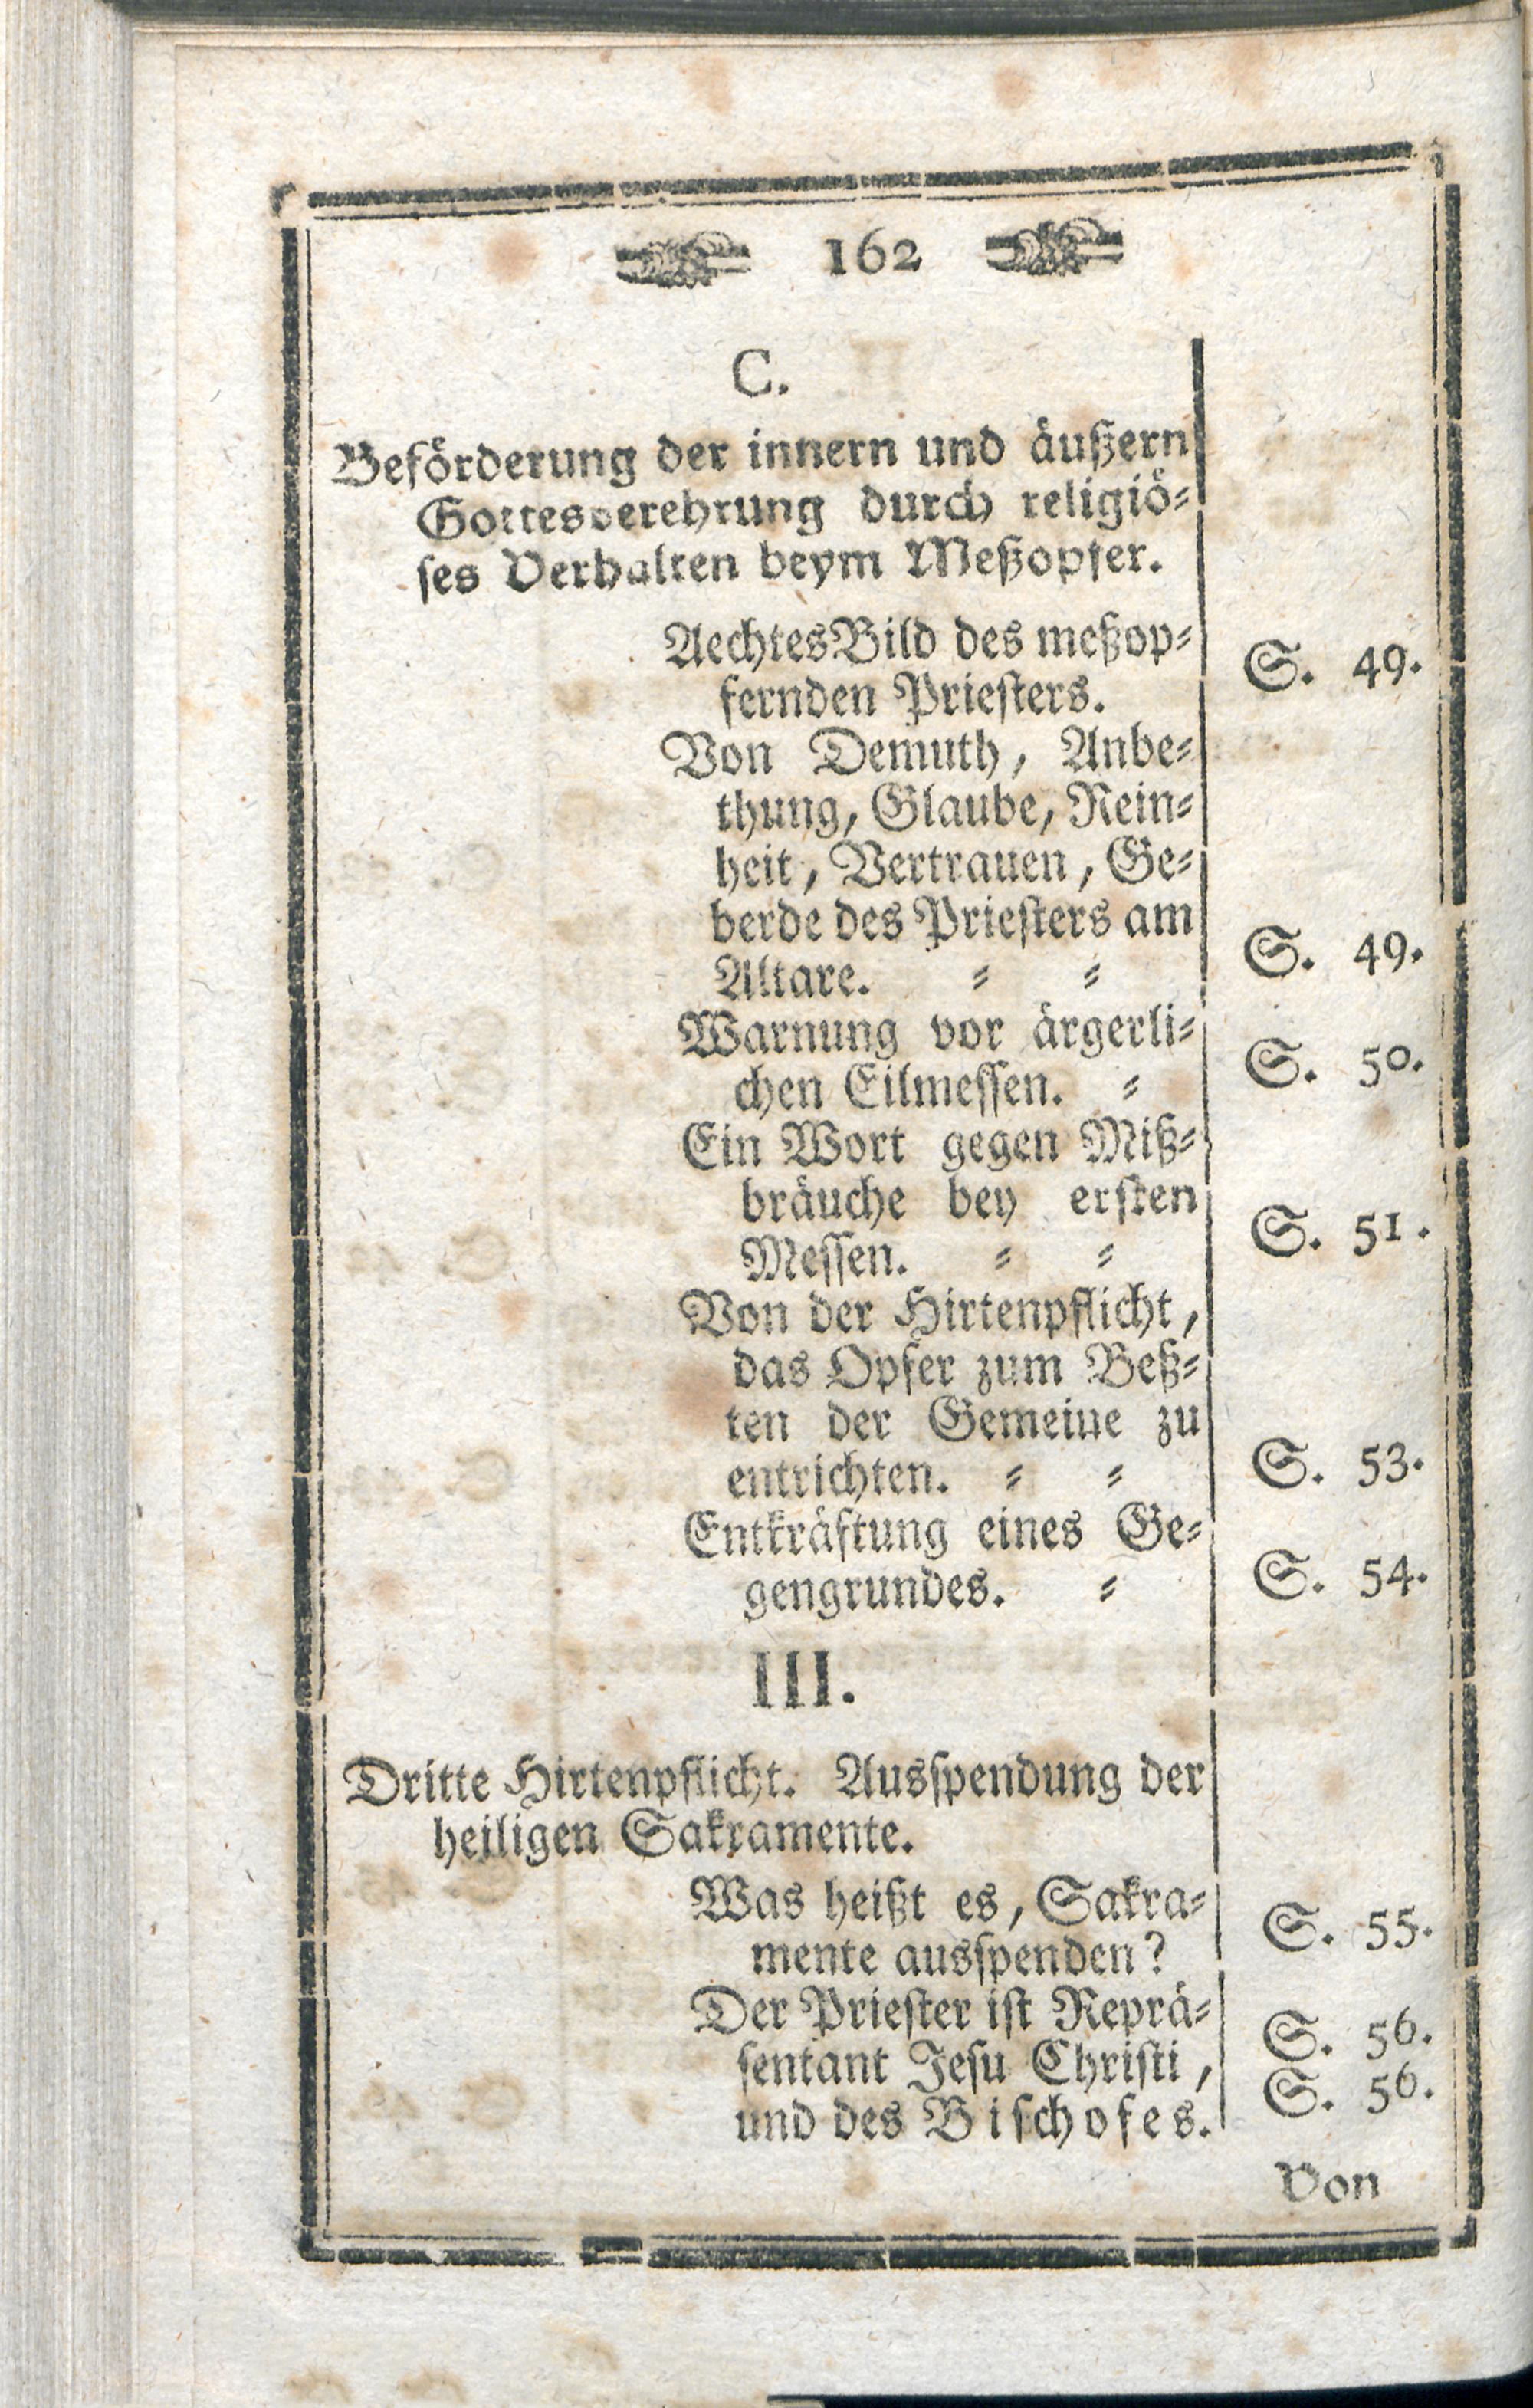 162
C.
Beförderung der innern und äußern
Gottesverehrung durch religiö⸗
ses Verhalten beym Meßopfer.
Aechtes Bild des meßop⸗
fernden Priesters. S. 49.
Von Demuth, Anbe⸗
thung, Glaube, Rein⸗
heit, Vertrauen, Ge⸗
berde des Priesters am
Altare. ⸗ ⸗ S. 49.
Warnung vor ärgerli⸗
chen Eilmessen. ⸗ S. 50.
Ein Wort gegen Miß⸗
bräuche bey ersten
Messen. ⸗ ⸗ S. 51.
Von der Hirtenpflicht,
das Opfer zum Beß⸗
ten der Gemeine zu
entrichten. ⸗ ⸗ S. 53.
Entkräftung eines Ge⸗
gengrundes. ⸗ S. 54.
III.
Dritte Hirtenpflicht. Ausspendung der
heiligen Sakramente.
Was heißt es, Sakra⸗
mente ausspenden? S. 55.
Der Priester ist Reprä⸗
sentant Jesu Christi, S. 56.
und des Bischofes. S. 56.
Von